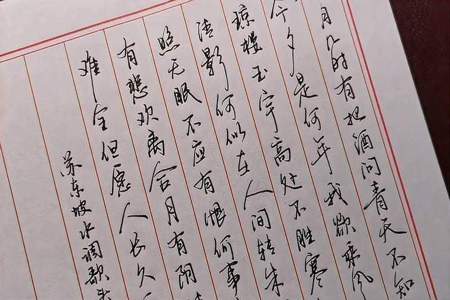 月几时有把酒问青天不知
今夕是何年我欲乘风
琼楼玉宇高处不胜寒
清影何似在人间转朱
照无眠不应有恨何事
有悲欢离合月有阴
难全但愿人长久
苏东坡水调歌头